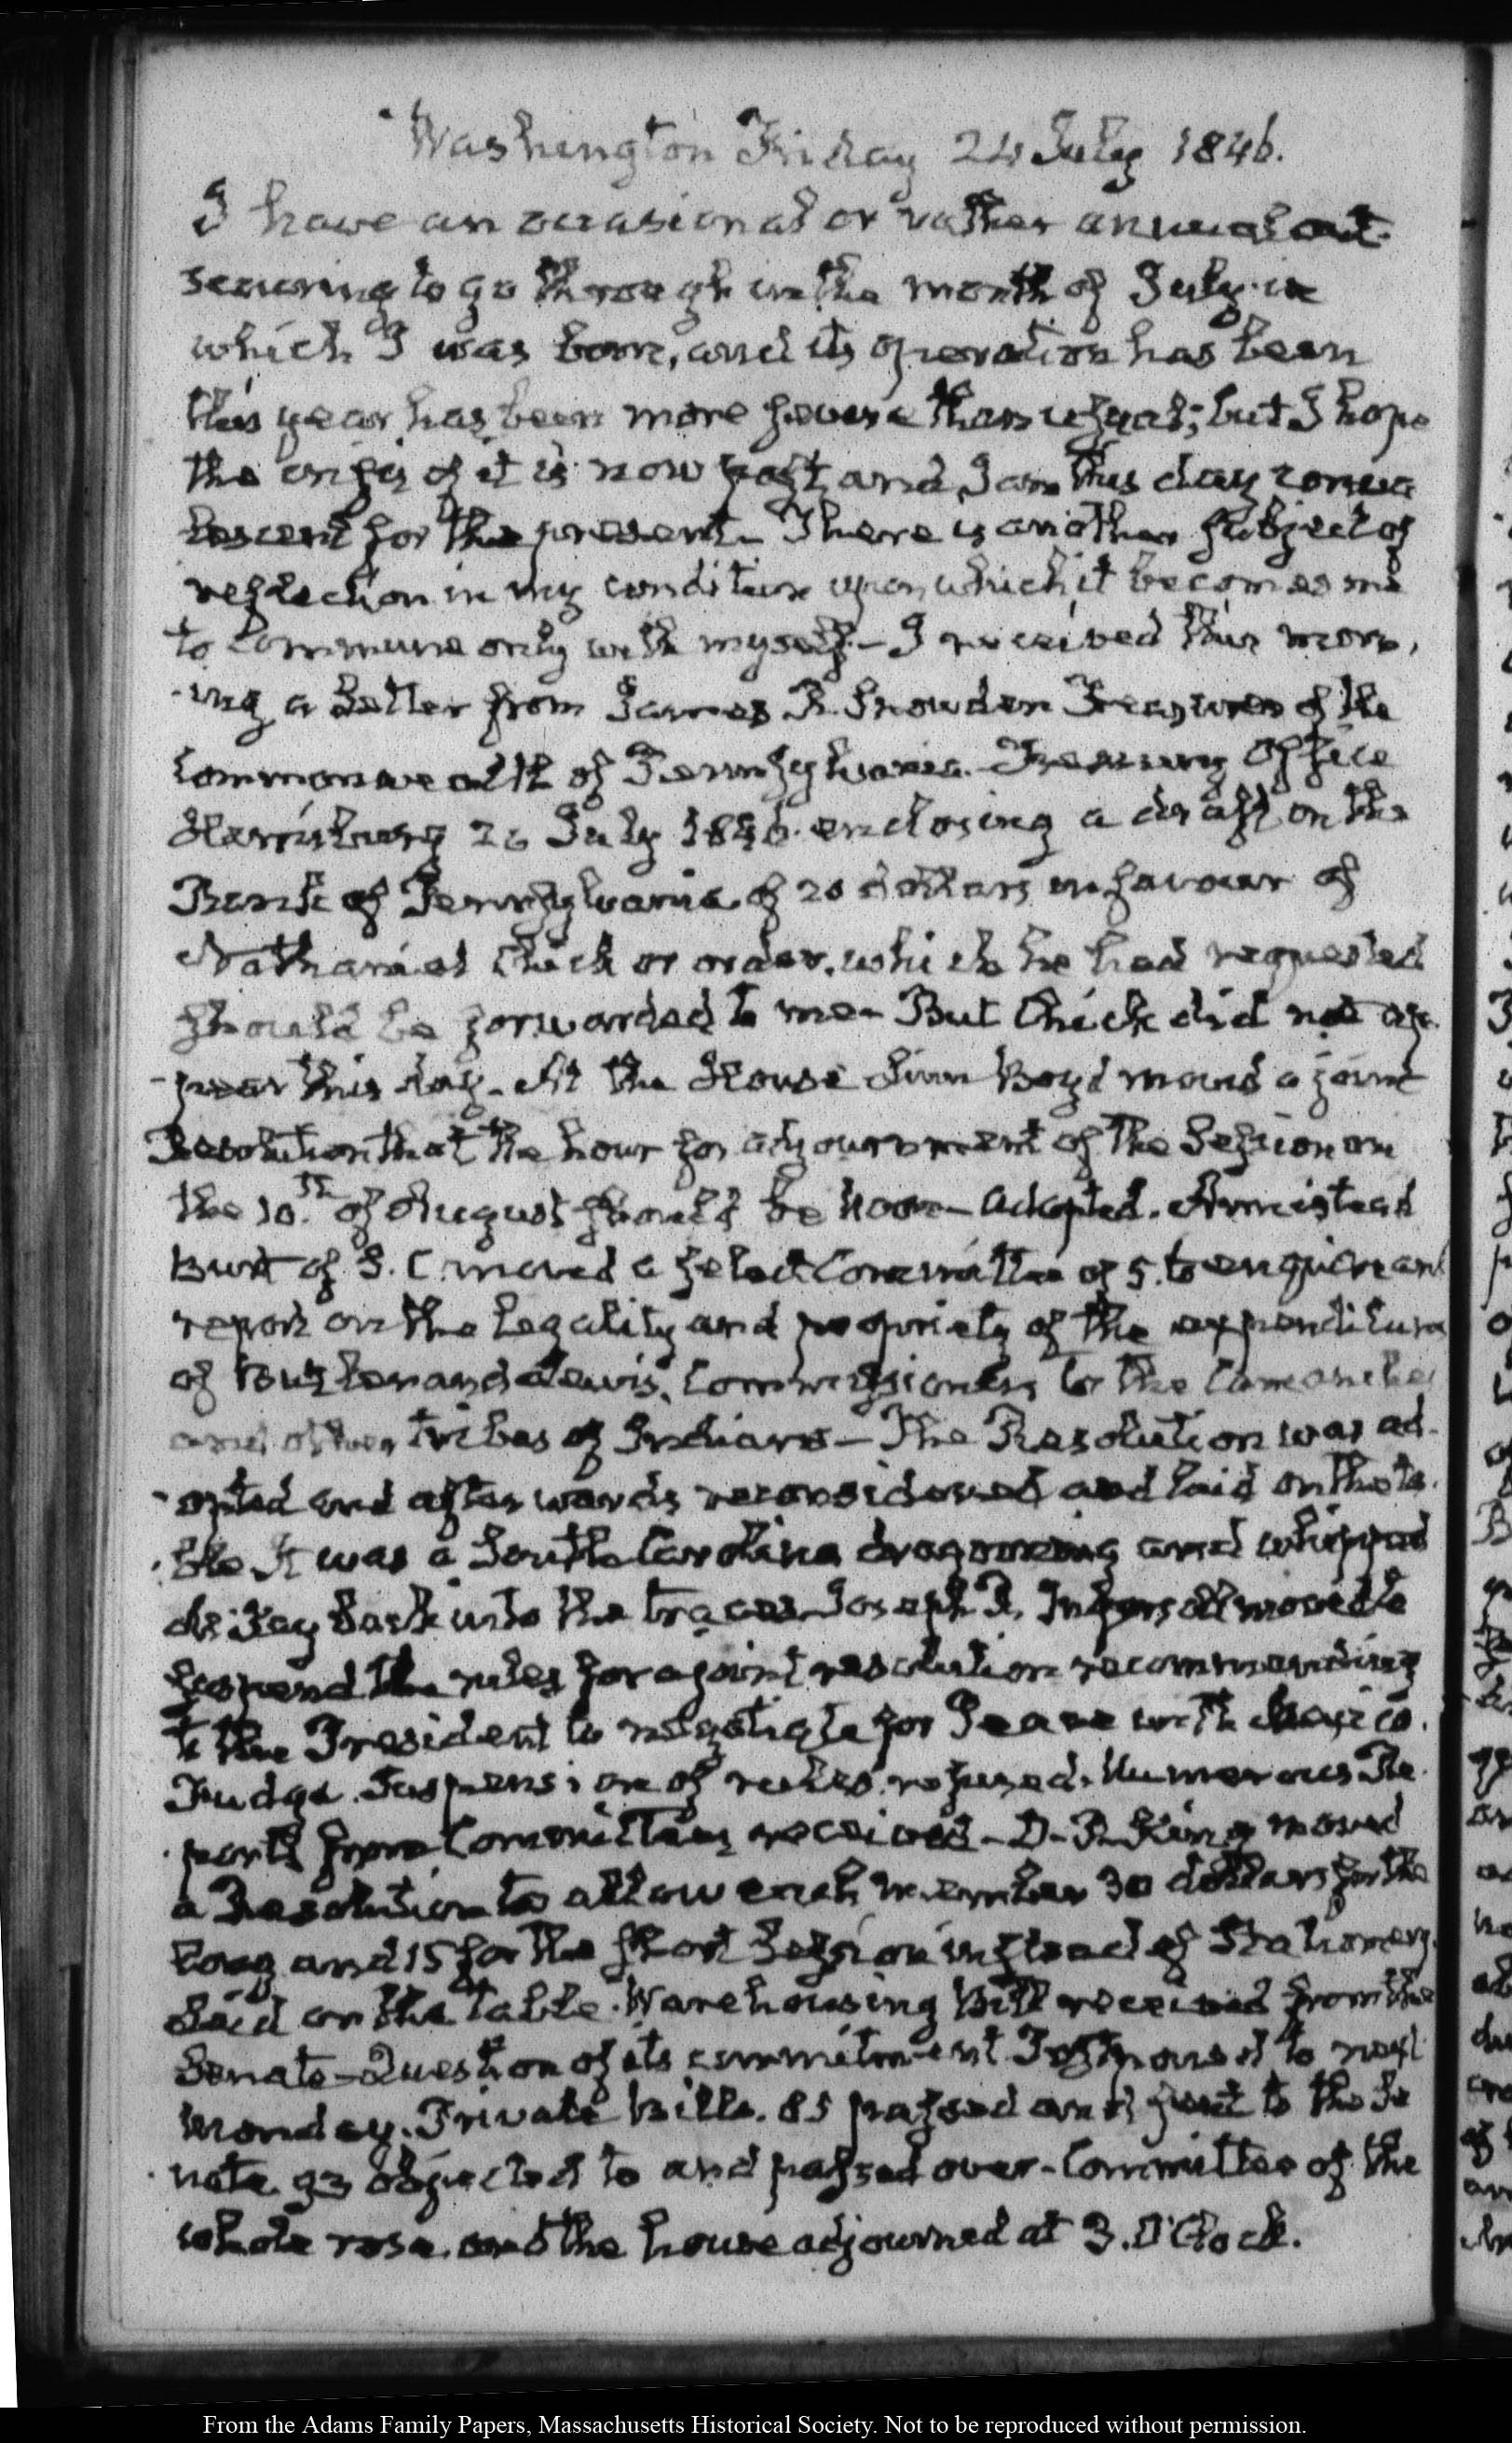 Washington Friday 24 July 1846.
I have an occasional or rather annual
seasoning to go through in the month of July in
which I was born, and its operation has been
this year has been more severe than usual; but I hope
the crisis of it is now past, and I am this day convalescent
for the present. There is another subject of
reflection in my condition upon which it becomes me
to commune only with myself.— I received this morn,
-ing a Letter from James R. Snowden Treasurer of the
Commonwealth of Pennsylvania. Treasury Office
Harrisburg July 1846. enclosing a draft on the
Bank of Pennsylvania of 20 dollars in favour of
Nathaniel Chick or order, which he had requested
should be forwarded to me— But Chick did not ap-
-pear this day. At the House Linn Boyd moved a joint
Resolution that the hour for adjournment of the Session on
the 10.th of August should be Noon— adopted. Armistead
Burt of S. C. moved a select Committee of 5. to enquire and
report on the legality and propriety of the expenditure
of Butler and Lewis, Commissioners to the Comanche
and other tribes of Indians— The Resolution was ad-
-opted and afterwards reconsidered and laid on the ta-
-ble It was a South Carolina dragooning and whipped
back into the traces— Joseph R. Ingersoll moved to
suspend the rules for a joint resolution recommending
to the President to negotiate for Peace with Mexico.
Fudge. Suspension of rules refused. Numerous Re-
-ports from Committees received— D. P. King moved
a Resolution to allow each member 30 dollars for the
long and 15 for the short Session instead of Stationery.
Laid on the table. Warehousing Bill received from the
Senate— Question of its commitment Postponed to next
Monday. Private Bills. 85 passed and sent to the Se
-nate. 93 objected to and passed over— Committee of the
whole rose. and the house adjourned at 3. O'Clock.
From the Adams Family Papers, Massachusetts Historical Society. Not to be reproduced without permission.